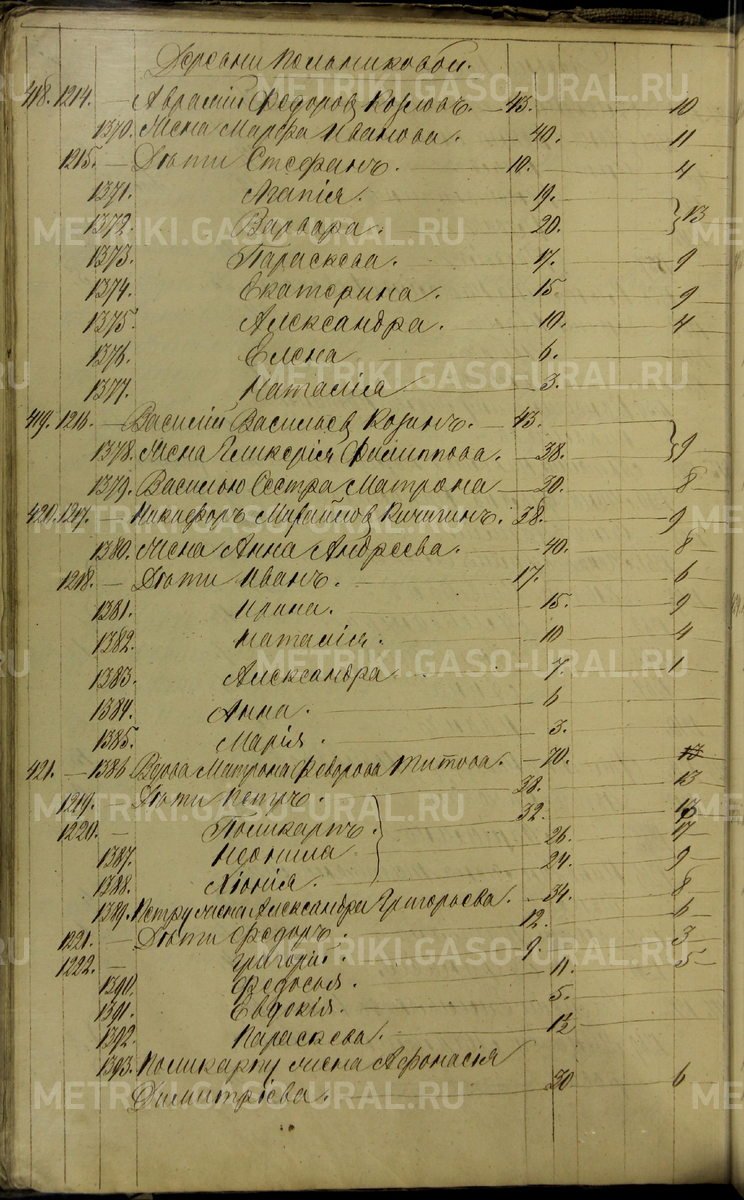 Деревни Полы​никовой.
418. 1214. — Аврамий Федоров Козловъ. — 43. 10
1370. Жена Марфа Иванова. — 40. 11
1215. — Дѣти Стефанъ. 10. 4
1371. Агапія. 19.
1372. Варвара. 20. } 13
1373. Параскева. 17. 9
1374. Екатерина. 15 9
1375. Александра. 10. 4
1376. Елена 6.
1377. Наталія 3.
419. 1216. — Василій Васильев Козинъ. — 43.
1378. Жена Гликерія Филиппова. — 38. } 9
1379. Васи​лью Сестра Матрона — 20. 8
420. 1217. — Никифоръ Михайлов Кичигинъ. 38. 9
1380. Жена Анна Андреева. — 40. 8
1218. — Дѣти Иванъ. 17. 6
1381. Ирина. 15. 9
1382. Наталія. 10 4
1383. Александра 7. 1
1384. Анна. 6
1385. Марія. 3.
421. — 1386 Вдова Матрона Федорова Титова. — 70. 13
1219. Дѣти Петръ. 38. 13
1220. — Поликарпъ. 32. 13
1387. Неонила 26. 17
1388. Хіонія. 24. 9
1389. Петру жена Александра Григорьева. — 34. 8
1221. — Дѣти Федоръ. 12. 6
1222. — Григорій. 9 3
1390. Федосья. 11. 5
1391. Евдокія. 5.
1392. Параскева. 12
1393. Поликарпу жена Афонасія
Димитріева. 30 6
METRIKI.GASO-URAL.RU